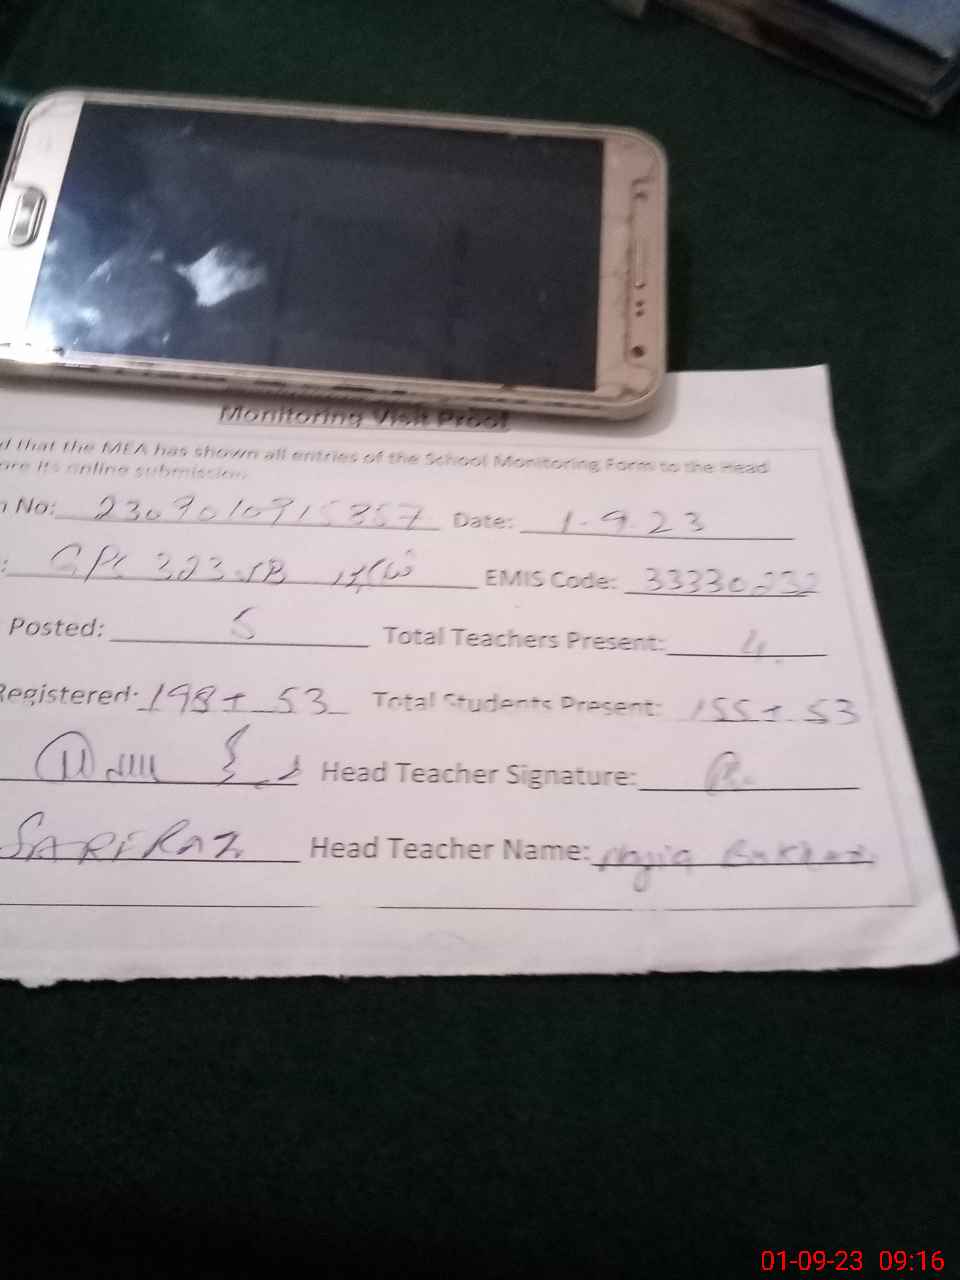 Monitoring Visit Proof
d that the MEA has shown all entries of the School Monitoring Form to the Head
ore its online submission
n No: 2309010915857 Date: 1.9.23
: GPS 323 EMIS Code: 33330232
Posted: 5 Total Teachers Present: 4.
Registered: 198+53 Total Students Present: 155+53
Head Teacher Signature:
SARFRAZ Head Teacher Name:
01-09-23 09:16